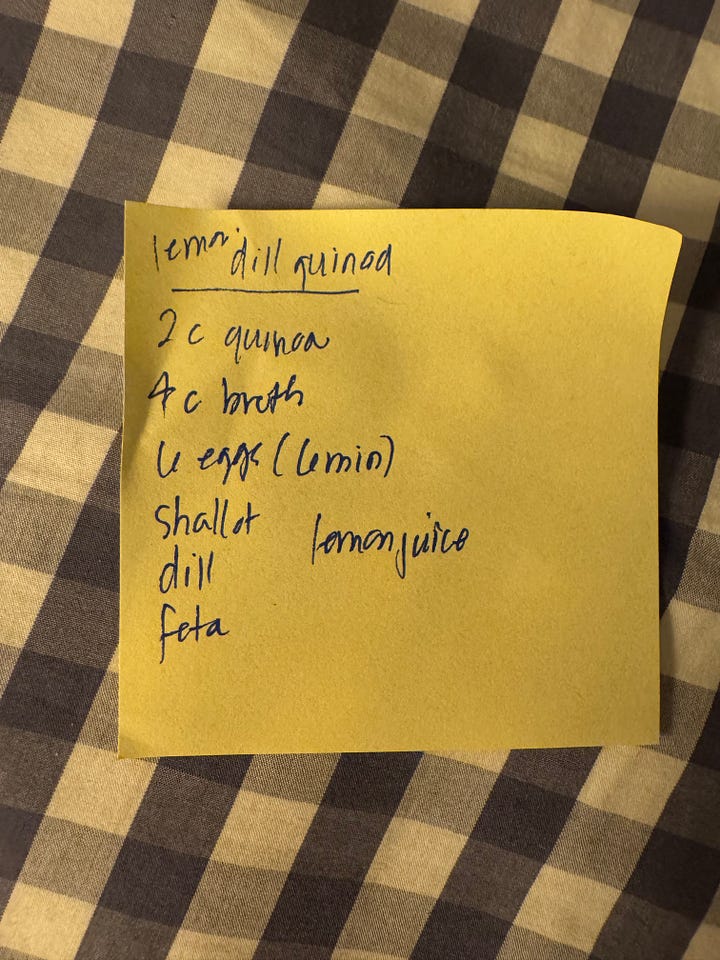 lemon dill quinoa
2 c quinoa
4 c broth
6 eggs (6 min)
shallot
lemon juice
dill
feta